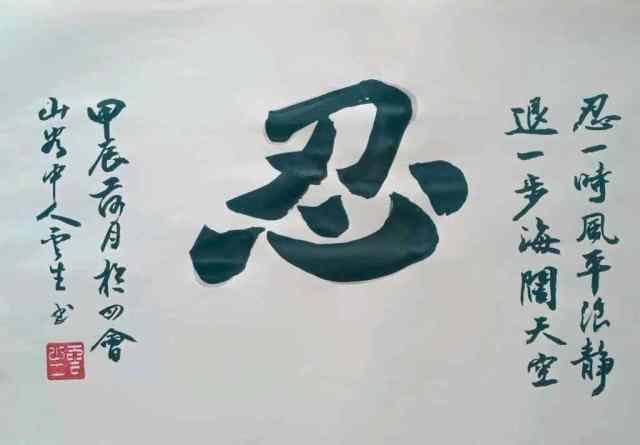 忍一時風平浪靜
退一步海闊天空
忍
甲辰月於四會
山中人雲生书